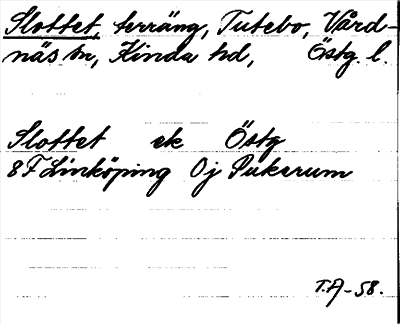 Slottet, terräng, Tutebo, Vård-
näs sn, Kinda hd, Östg. l.
Slottet ek Östg
8F Linköping 0j Pukerum
T.A-58.